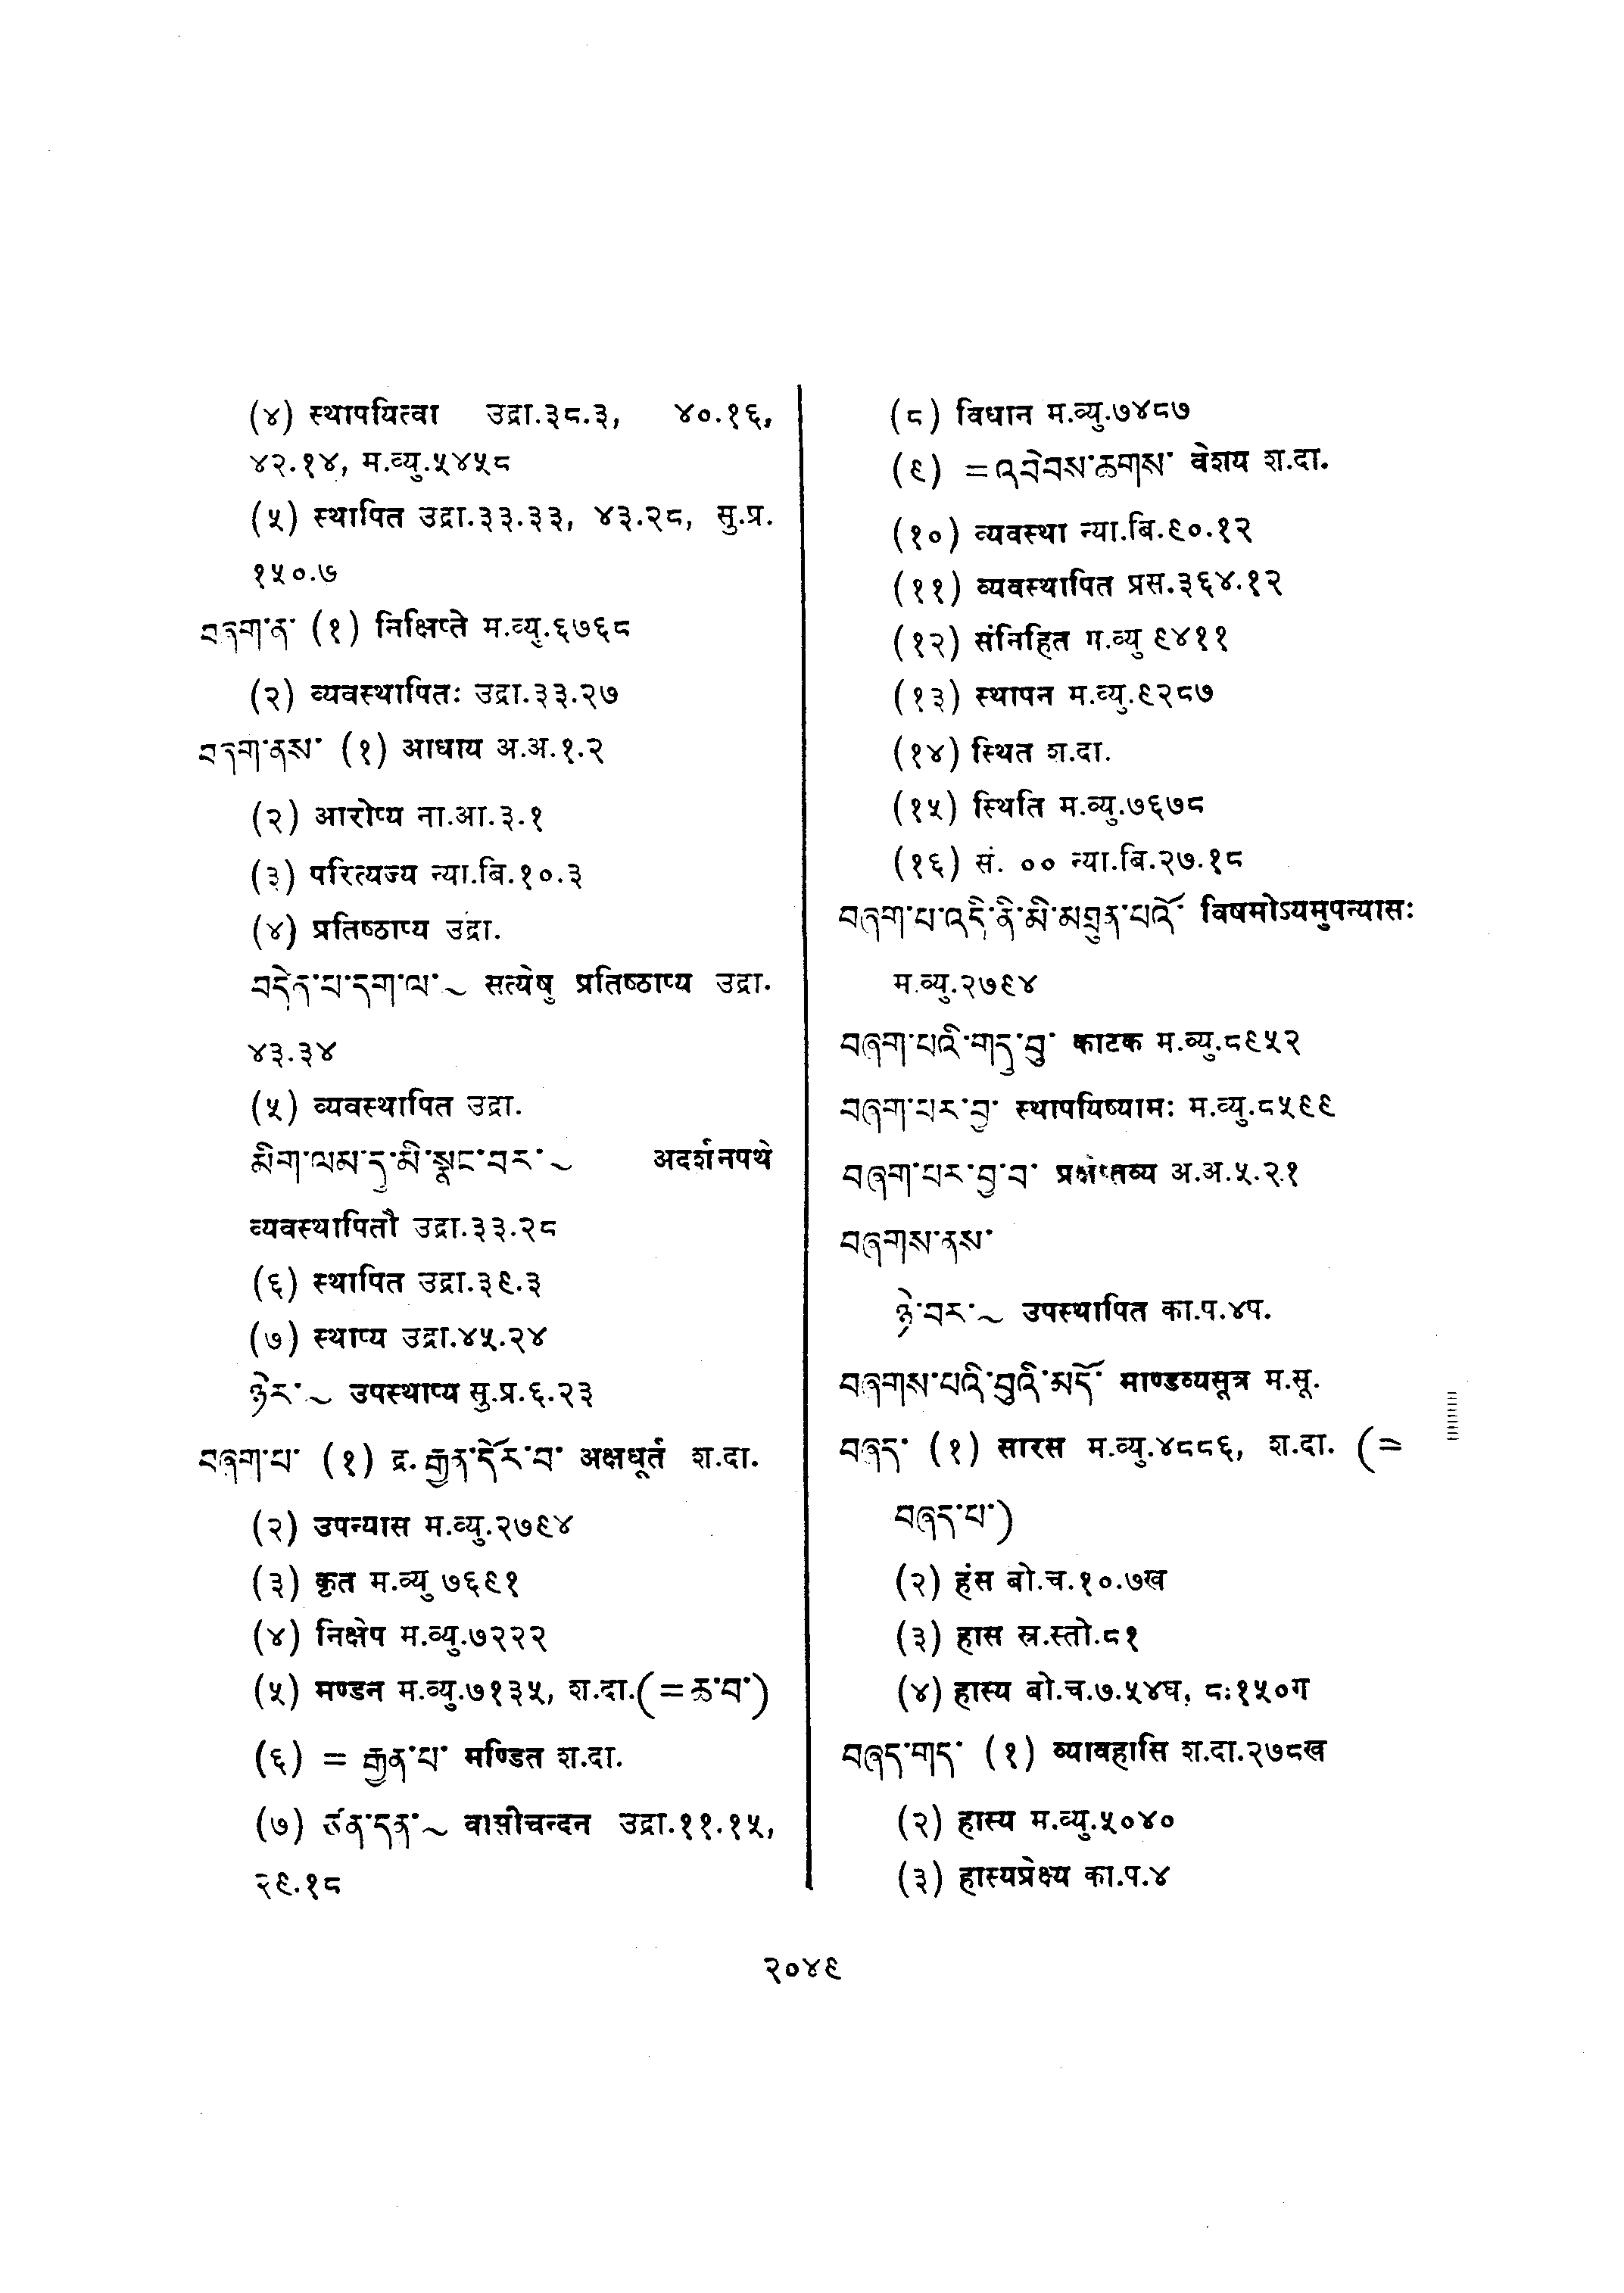 (४) स्थापयित्वा उद्रा.३८.३, ४०.१६,
४२.१४, म.व्यु.५४५८
(५) स्थापित उद्रा.३३.३३, ४३.२८, सु.प्र.
१५०.७
བཞག་ན་ (१) निक्षिप्ते म.व्यु.६७६८
(२) व्यवस्थापितः उद्रा.३३.२७
བཞག་ནས་ (१) आधाय अ.अ.१.२
(२) आरोप्य ना.आ.३.१
(३) परित्यज्य न्या.बि.१०.३
(४) प्रतिष्ठाप्य उद्रा.
བདེན་པ་དག་ལ་~ सत्येषु प्रतिष्ठाप्य उद्रा.
४३.३४
(५) व्यवस्थापित उद्रा.
མིག་ལམ་དུ་མི་སྣང་བར་~ अदर्शनपथे
व्यवस्थापितौ उद्रा.३३.२८
(६) स्थापित उद्रा.३९.३
(७) स्थाप्य उद्रा.४५.२४
ཉེར་~ उपस्थाप्य सु.प्र.६.२३
བཞག་པ་ (१) द्र. རྒྱན་དོར་བ་ अक्षधूर्त श.दा.
(२) उपन्यास म.व्यु.२७९४
(३) कृत म.व्यु ७६९१
(४) निक्षेप म.व्यु.७२२२
(५) मण्डन म.व्यु.७१३५, श.दा.(=ཆ་བ་)
(६) = རྒྱན་པ་ मण्डित श.दा.
(७) ཙན་དན་~ वासीचन्दन उद्रा.११.१५,
२९.१८
(८) विधान म.व्यु.७४८७
(९) =འབེབས་ཆགས་ वेशय श.दा.
(१०) व्यवस्था न्या.बि.९०.१२
(११) व्यवस्थापित प्रस.३६४.१२
(१२) संनिहित म.व्यु ९४११
(१३) स्थापन म.व्यु.९२८७
(१४) स्थित श.दा.
(१५) स्थिति म.व्यु.७६७८
(१६) सं. ०० न्या.बि.२७.१८
བཞག་པ་འདི་ནི་མི་མཐུན་པའོ་ विषमोऽयमुपन्यासः
म.व्यु.२७९४
བཞག་པའི་གདུ་བུ་ काटक म.व्यु.८९५२
བཞག་པར་བྱ་ स्थापयिष्यामः म.व्यु.८५९९
བཞག་པར་བྱ་བ་ प्रक्षेप्तव्य अ.अ.५.२१
བཞགས་ནས་
ཉེ་བར་~ उपस्थापित का.प.४प.
བཞགས་པའི་བུའི་མདོ་ माण्डव्यसूत्र म.सू.
བཞད་ (१) सारस म.व्यु.४८८६, श.दा. (=
བཞད་པ་)
(२) हंस बो.च.१०.७ख
(३) हास स्र.स्तो.८१
(४) हास्य बो.च.७.५४घ, ८:१५०ग
བཞད་གད་ (१) व्यावहासि श.दा.२७८ख
(२) हास्य म.व्यु.५०४०
(३) हास्यप्रेक्ष्य का.प.४
२०४९